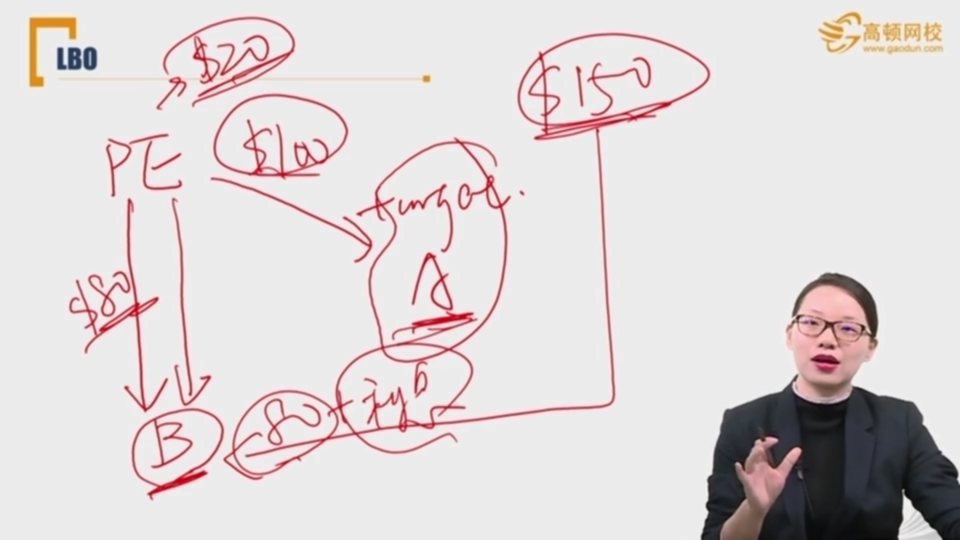 LBO
高顿网校
www.gaodun.com
$20
$150
PE
$100
target
A
$80
B
80 + 利息